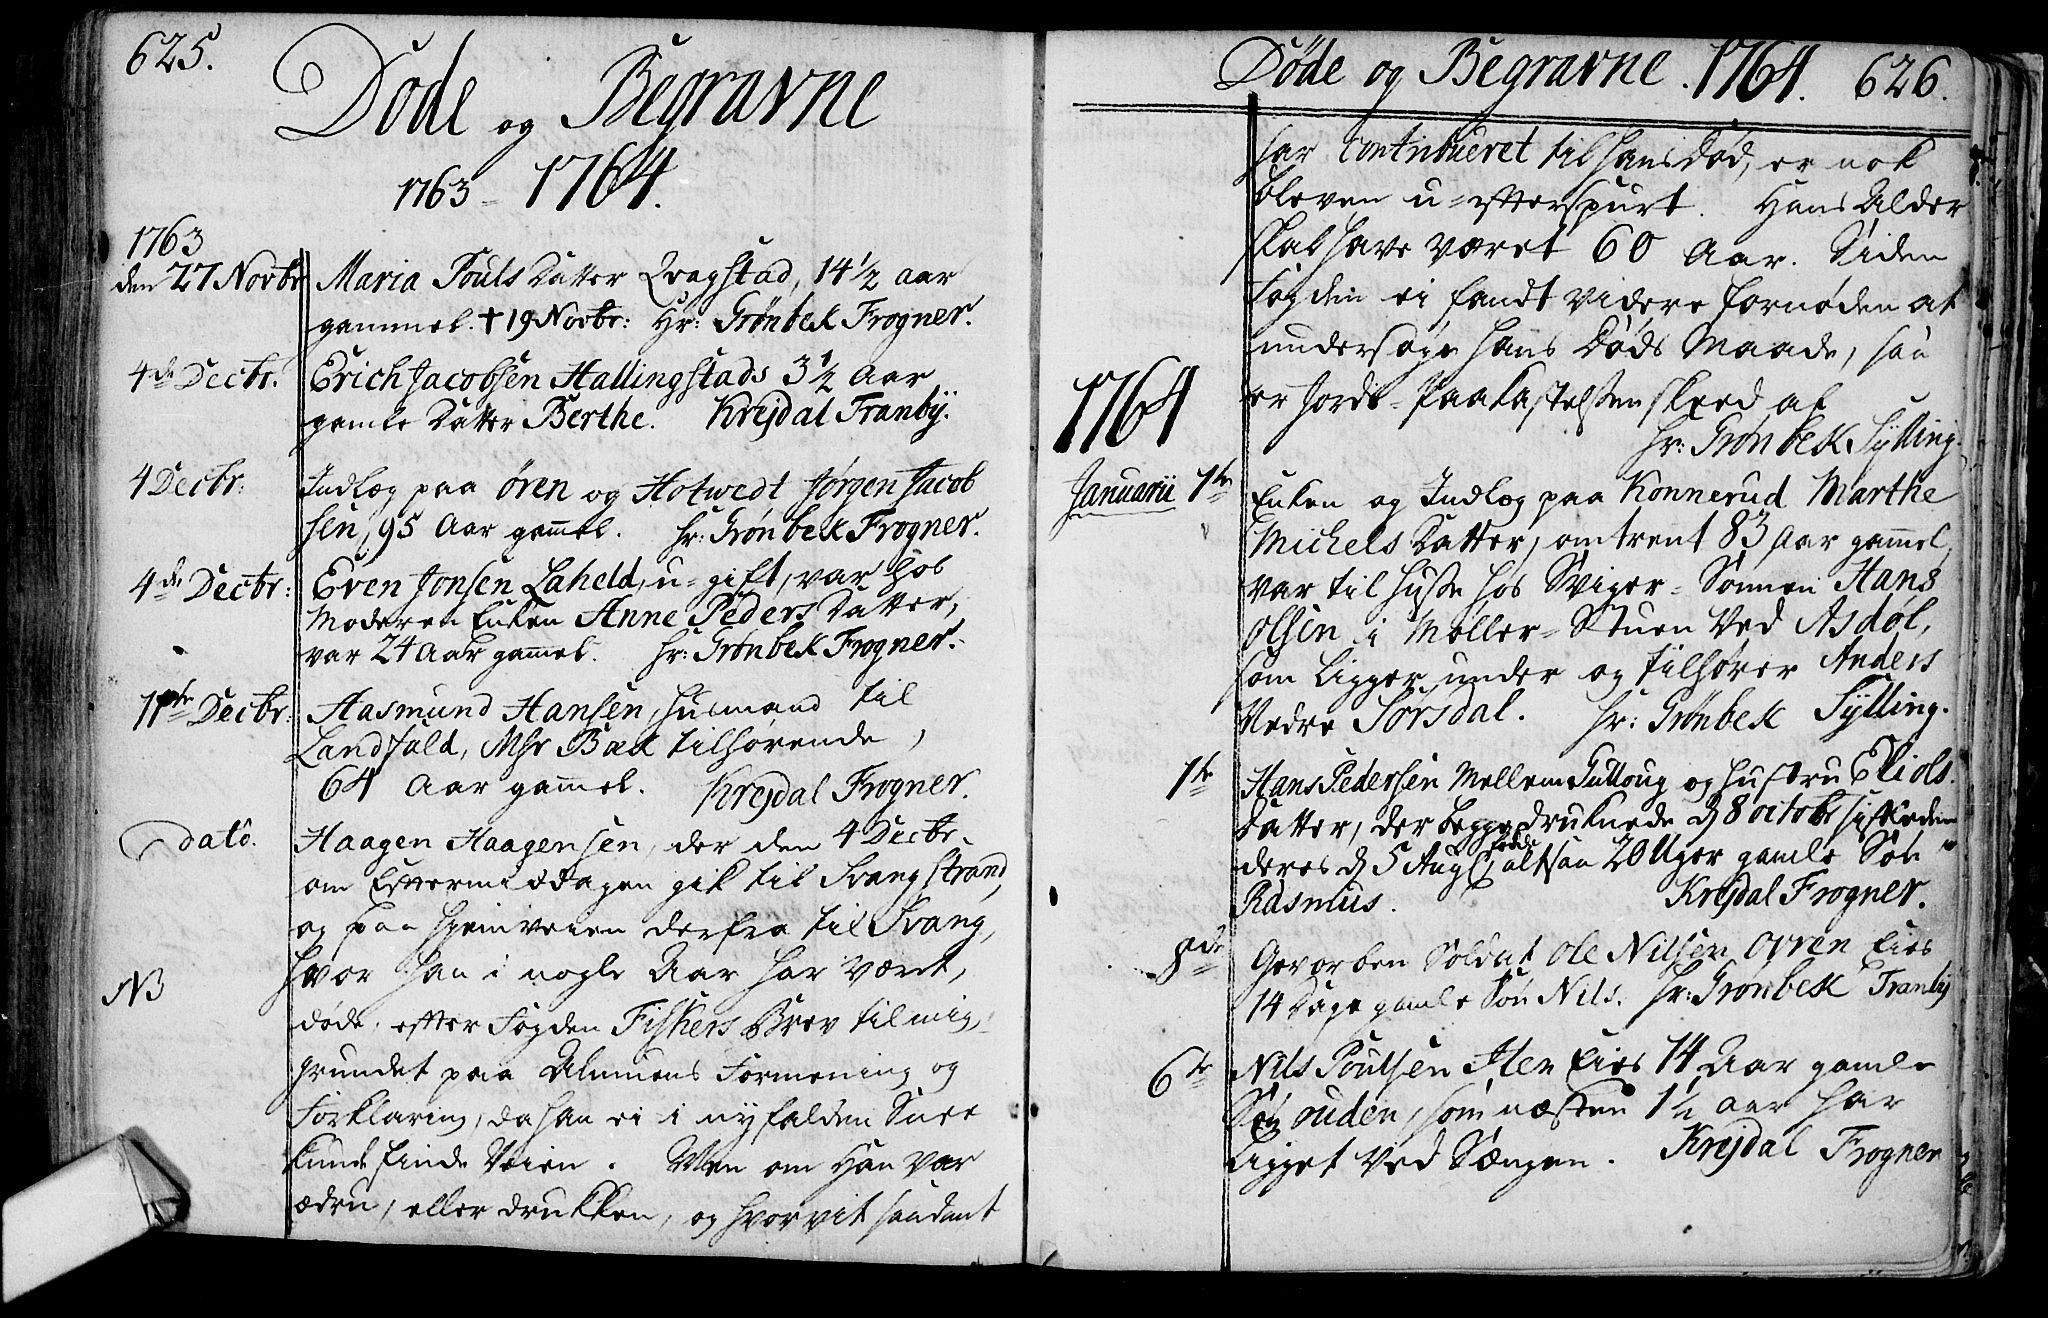 625.
Døde og Begravne
1763 - 1764.
1763
den 27 Novbr Maria Pouls Datter Qvagstad, 14 1/2 aar
gammel. † 19 Novbr: Hr: Grønbek Frogner.
4de Decbr. Erich Jacobsen Hallingstads 3 1/2 Aar
gamle Datter Berthe. Krejdal Tranbÿ.
4 Decbr: Indlæg paa Øren og Hotwedt Jørgen Jacob
sen, 95 Aar gam̄el. Hr: Grønbek Frogner.
4de Decbr: Even Jonsen Laheld, u-gift, var hos
Moderen Enken Anne Peders Datter,
var 24 Aar gam̄el. Hr: Grønbek Frogner.
11te Decbr: Aasmund Hansen, Husmand til
Landfald, Mhr Bæk tilhørende,
64 Aar gam̄el. Krejdal Frogner.
dato. Haagen Haagensen, der den 4 Decbr.
om Eftermiddagen gik til Svangstrand,
og paa Hiemveien derfra til Svang,
hvor han i nogle Aar har været,
NB
døde, efter Fogden Fiskers Brev til mig,
grundet paa Almuens Formening og
Forklaring, da han ei i nyfalden Snee
kunde finde Veien. Men om Han var
ædru, eller drukken, og hvorvit saadant
Døde og Begravne. 1764. 626.
har Contribueret til hans Død, er nok
bleven u-efterspurt. Hans Alder
skal have været 60 Aar. Siden
Fogden ei fandt videre fornøden at
undersøge hans Døds Maade, saa
er Jords-Paakastelsen skeed af
Hr: Grønbek Sÿlling.
1764
Januarii 1te Enken og Indlæg paa Konnerud Marthe
Michels Datter, omtrent 83 Aar gam̄el,
var til Huse hos Sviger-Sønnen Hans
Olsen i Møller-Stuen ved Asdøl,
som ligger under og tilhører Anders
Nedre Sørsdal. Hr: Grønbek Sÿlling.
1te Hans Pedersen Mellem Gulloug og Hustru Eli Ols
Datter, der begge druknede d 8 octobr sidstleden
deres d 5 Aug fødde altsaa 20 Uger gamle Søn
Rasmus. Krejdal Frogner.
Gevorben Soldat Ole Nilsen Ovren Eies
14 Dage gamle Søn Nils. Hr: Grønbek Tranbÿ
6te Nils Poulsen Hen Eies 14 Aar gamle
Søn ouden, som næsten 1 1/2 aar har
ligget ved Sængen. Krejdal Frogner